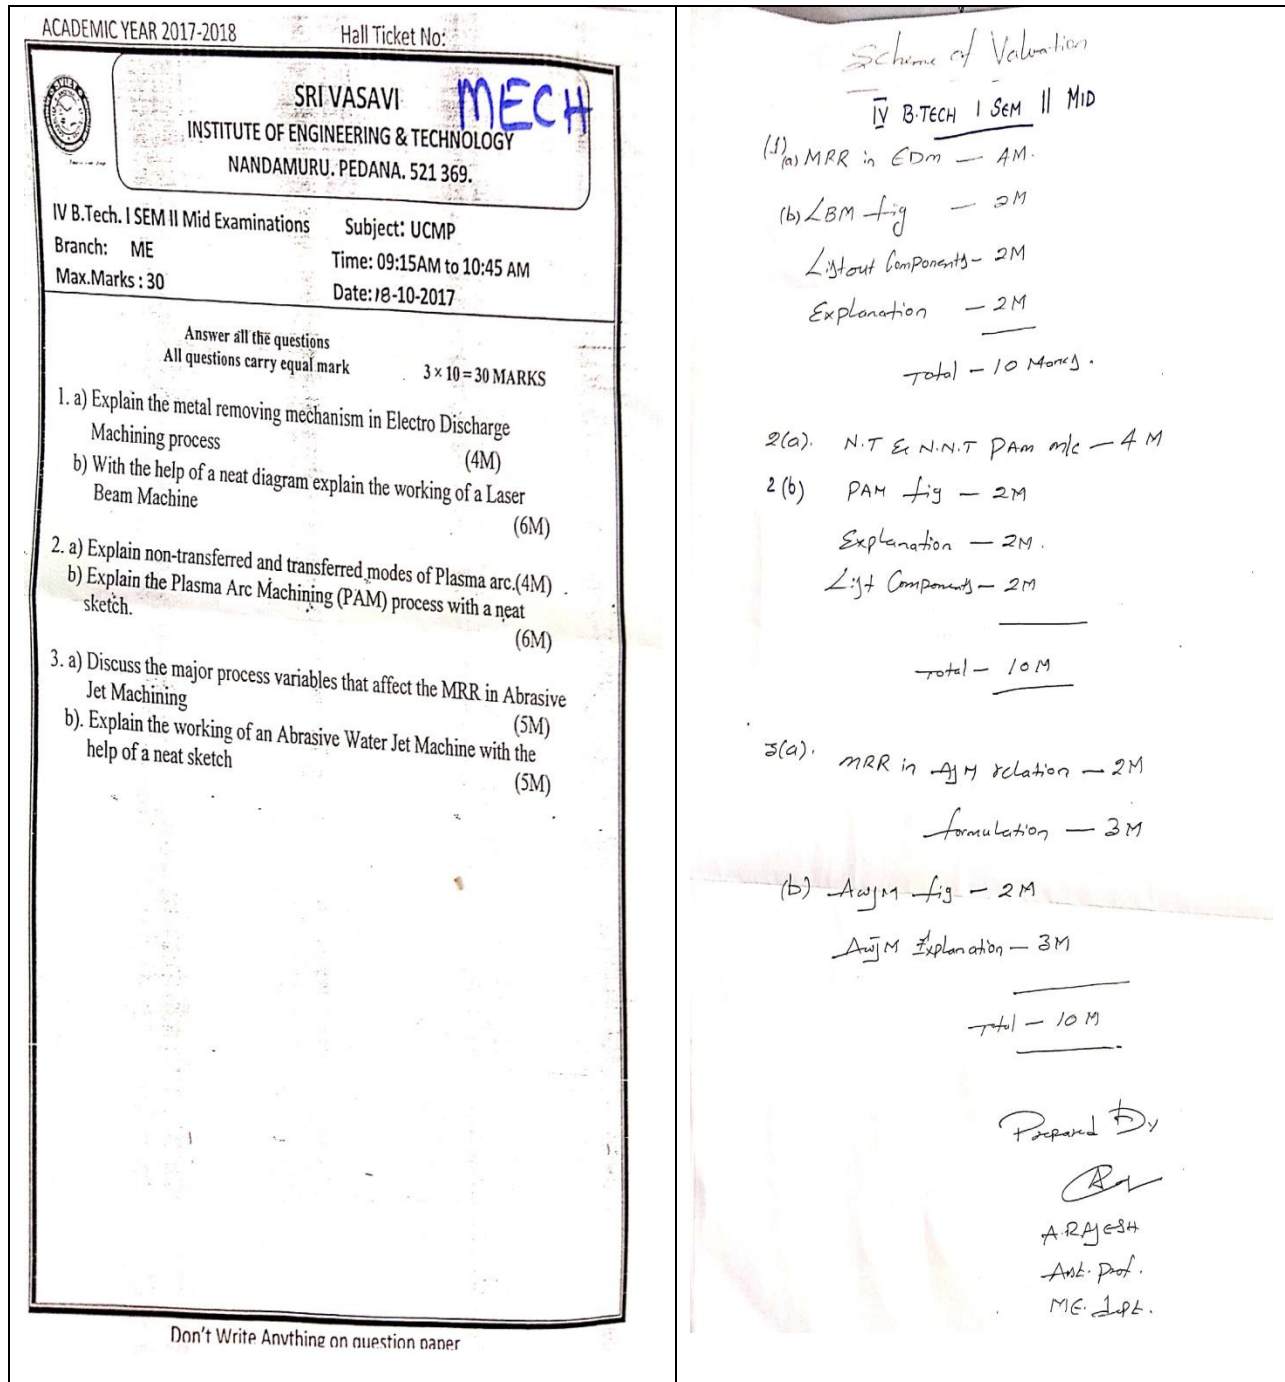 ACADEMIC YEAR 2017-2018 Hall Ticket No:
MECH
SRI VASAVI
INSTITUTE OF ENGINEERING & TECHNOLOGY
NANDAMURU. PEDANA. 521 369.
IV B.Tech. I SEM II Mid Examinations Subject: UCMP
Branch: ME Time: 09:15AM to 10:45 AM
Max.Marks : 30 Date:18-10-2017
Answer all the questions
All questions carry equal mark 3 × 10 = 30 MARKS
1. a) Explain the metal removing mechanism in Electro Discharge
Machining process (4M)
b) With the help of a neat diagram explain the working of a Laser
Beam Machine (6M)
2. a) Explain non-transferred and transferred modes of Plasma arc.(4M)
b) Explain the Plasma Arc Machining (PAM) process with a neat
sketch. (6M)
3. a) Discuss the major process variables that affect the MRR in Abrasive
Jet Machining (5M)
b). Explain the working of an Abrasive Water Jet Machine with the
help of a neat sketch (5M)
Don't Write Anything on question paper
Scheme of Valuation
IV B.TECH I SEM II MID
(1) (a) MRR in EDM — 4M.
(b) LBM fig — 2M
Listout Components - 2M
Explanation — 2M
Total — 10
2(a). N.T & N.N.T PAM m/c — 4 M
2(b) PAM fig — 2M
Explanation — 2M.
List Components — 2M
Total — 10M
3(a). MRR in AJM relation — 2M
formulation — 3M
(b) AWJM fig — 2M
AWJM Explanation — 3M
Total — 10 M
Prepared By
A.RAJESH
Asst. Prof.
ME. Dept.